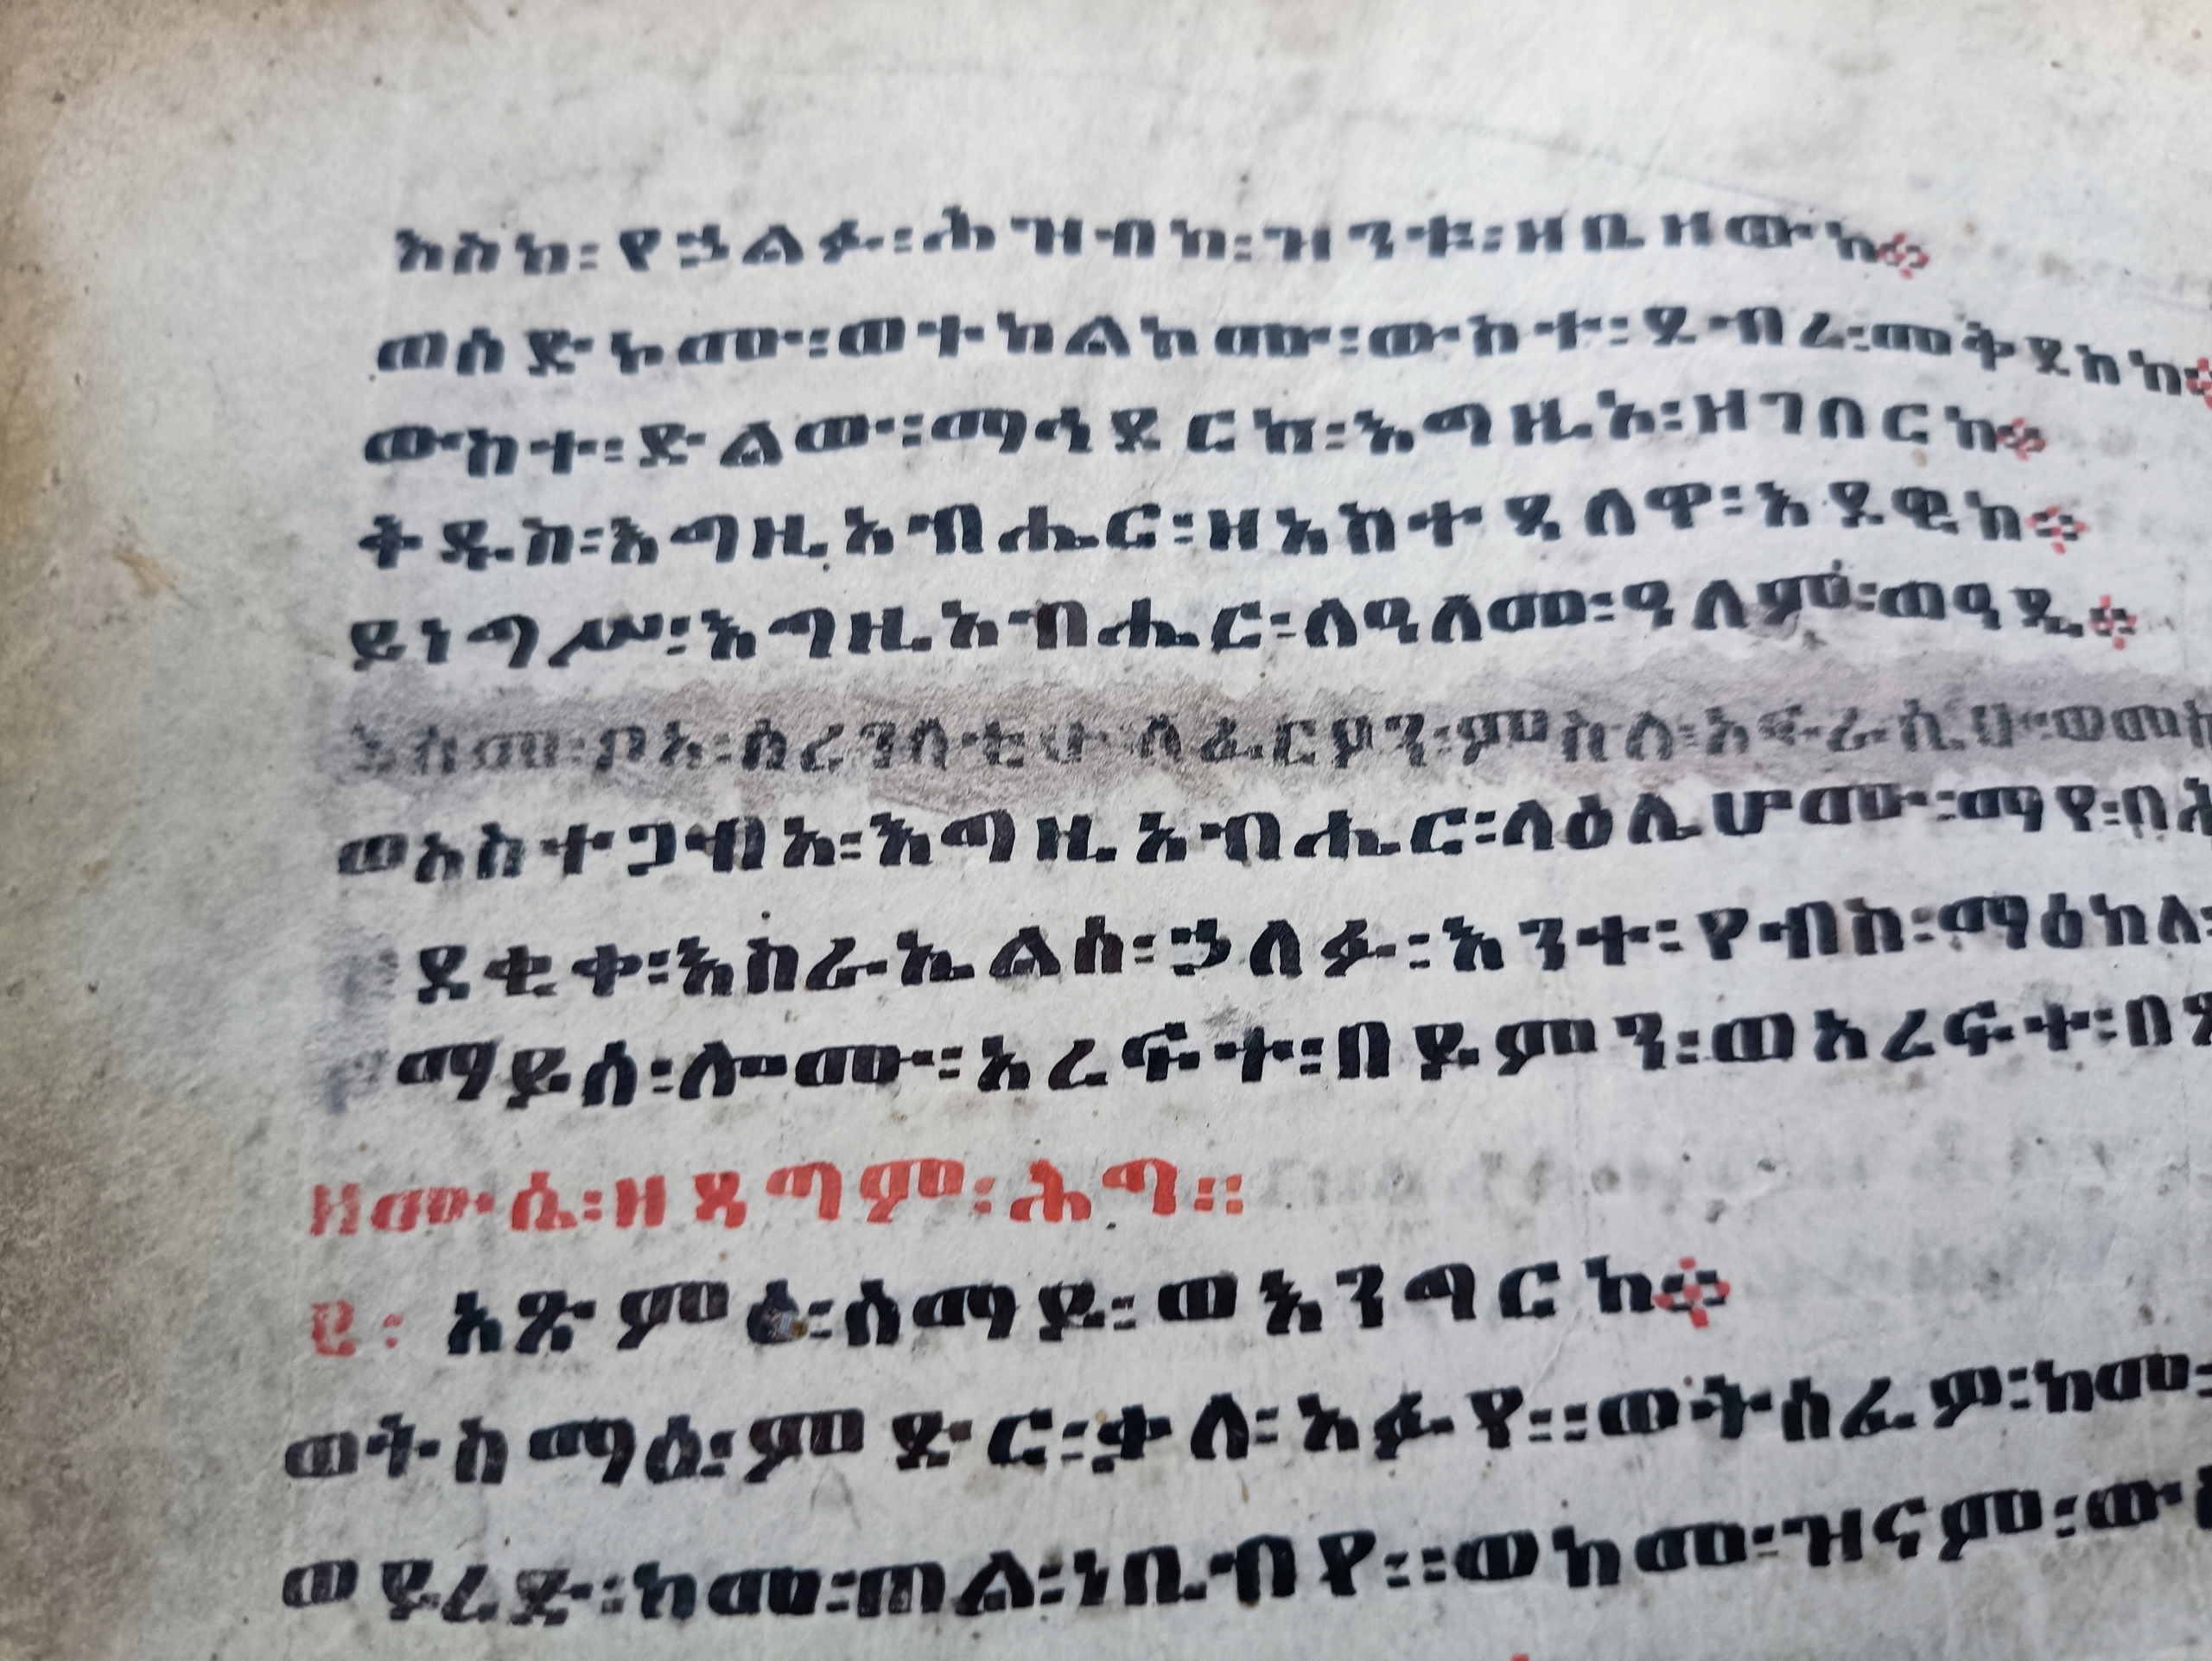 እስከ፡የኃልፉ፡ሕዝብከ፡ዝንቱ፡ዘቤዘውከ፨
ወስድኮሙ፡ወተክልኮሙ፡ውስተ፡ደብረ፡መቅደስከ፨
ውስተ፡ድልው፡ማኅደርከ፡እግዚኦ፡ዘገበርከ፨
ቅዱስ፡እግዚአብሔር፡ዘአስተዳለዋ፡እደዊከ፨
ይነግሥ፡እግዚአብሔር፡ለዓለመ፡ዓለም፡ወዓዲ፨
እስመ፡ቦአ፡ሰረገላቲሁ፡ለፈርዖን፡ምስለ፡አፍራሲሁ፡
ወአስተጋብአ፡እግዚአብሔር፡ላዕሌሆሙ፡ማየ፡
ደቂቀ፡እስራኤልሰ፡ኃለፉ፡እንተ፡የብስ፡ማዕከለ፡
ማይሰ፡ኮኖሙ፡አረፍተ፡በይምን፡ወአረፍተ፡
ዘሙሴ፡ዘዳግም፡ሕግ።
፪፡ አጽምዕ፡ሰማይ፡ወእንግርከ፨
ወትስማዕ፡ምድር፡ቃለ፡አፉየ።ወትሰፈው፡ከመ፡
ወይረድ፡ከመ፡ጠል፡ነቢብየ።ወከመ፡ዝናም፡